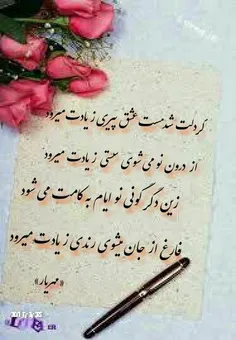 گر دلت شد مست عشق پیری ز یادت میرود
از درون نو می شوی سستی ز یادت میرود
زین دگرگونی نو ایام به کامت می شود
فارغ از جان میشوی رندی ز یادت میرود
«مهریار»